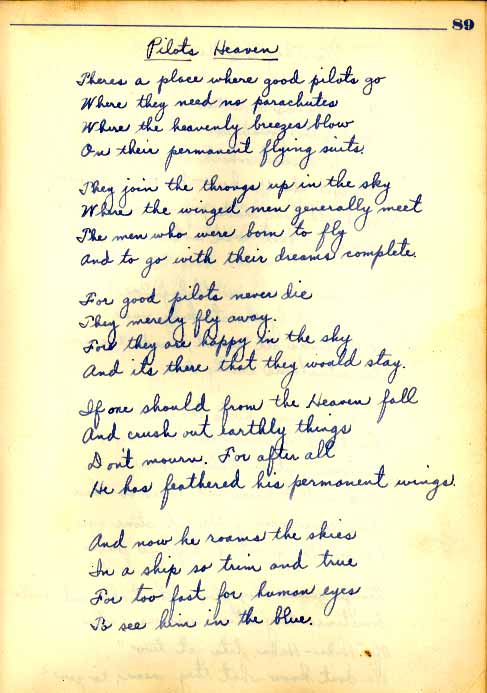 89
Pilots Heaven
Theres a place where good pilots go
Where they need no parachutes
Where the heavenly breezes blow
On their permanent flying suits.
They join the throngs up in the sky
Where the winged men generally meet
The men who were born to fly
And to go with their dreams complete.
For good pilots never die
They merely fly away.
For they are happy in the sky
And its there that they would stay.
If one should from the Heaven fall
And crush out earthly things
Don't mourn. For after all
He has feathered his permanent wings.
And now he roams the skies
In a ship so trim and true
Far too fast for human eyes
To see him in the blue.